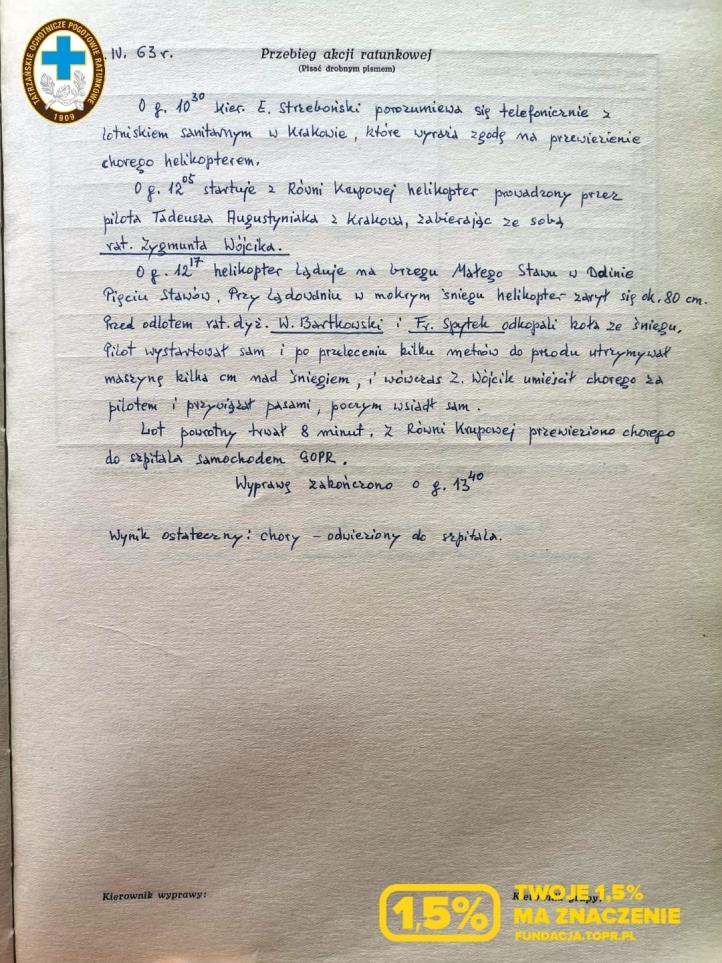 TATRZAŃSKIE OCHOTNICZE POGOTOWIE RATUNKOWE
1909
IV. 63 r.
Przebieg akcji ratunkowej
(Pisać drobnym pismem)
O g. 10³⁰ kier. E. Strzeboński porozumiewa się telefonicznie z
lotniskiem sanitarnym w Krakowie, które wyraża zgodę na przewiezienie
chorego helikopterem.
O g. 12⁰⁵ startuje z Równi Krupowej helikopter prowadzony przez
pilota Tadeusza Augustyniaka z Krakowa, zabierając ze sobą
rat. Zygmunta Wójcika.
O g. 12¹⁷ helikopter ląduje na brzegu Małego Stawu w Dolinie
Pięciu Stawów. Przy lądowaniu w mokrym śniegu helikopter zarył się ok. 80 cm.
Przed odlotem rat. dyż. W. Bartkowski i Fr. Spytek odkopali koła ze śniegu.
Pilot wystartował sam i po przeleceniu kilku metrów do przodu utrzymywał
maszynę kilka cm nad śniegiem, i wówczas Z. Wójcik umieścił chorego za
pilotem i przywiązał pasami, poczym wsiadł sam.
Lot powrotny trwał 8 minut. Z Równi Krupowej przewieziono chorego
do szpitala samochodem GOPR.
Wyprawę zakończono o g. 13⁴⁰
Wynik ostateczny: chory – odwieziony do szpitala.
Kierownik wyprawy:
1,5%
TWOJE 1,5%
MA ZNACZENIE
FUNDACJA.TOPR.PL